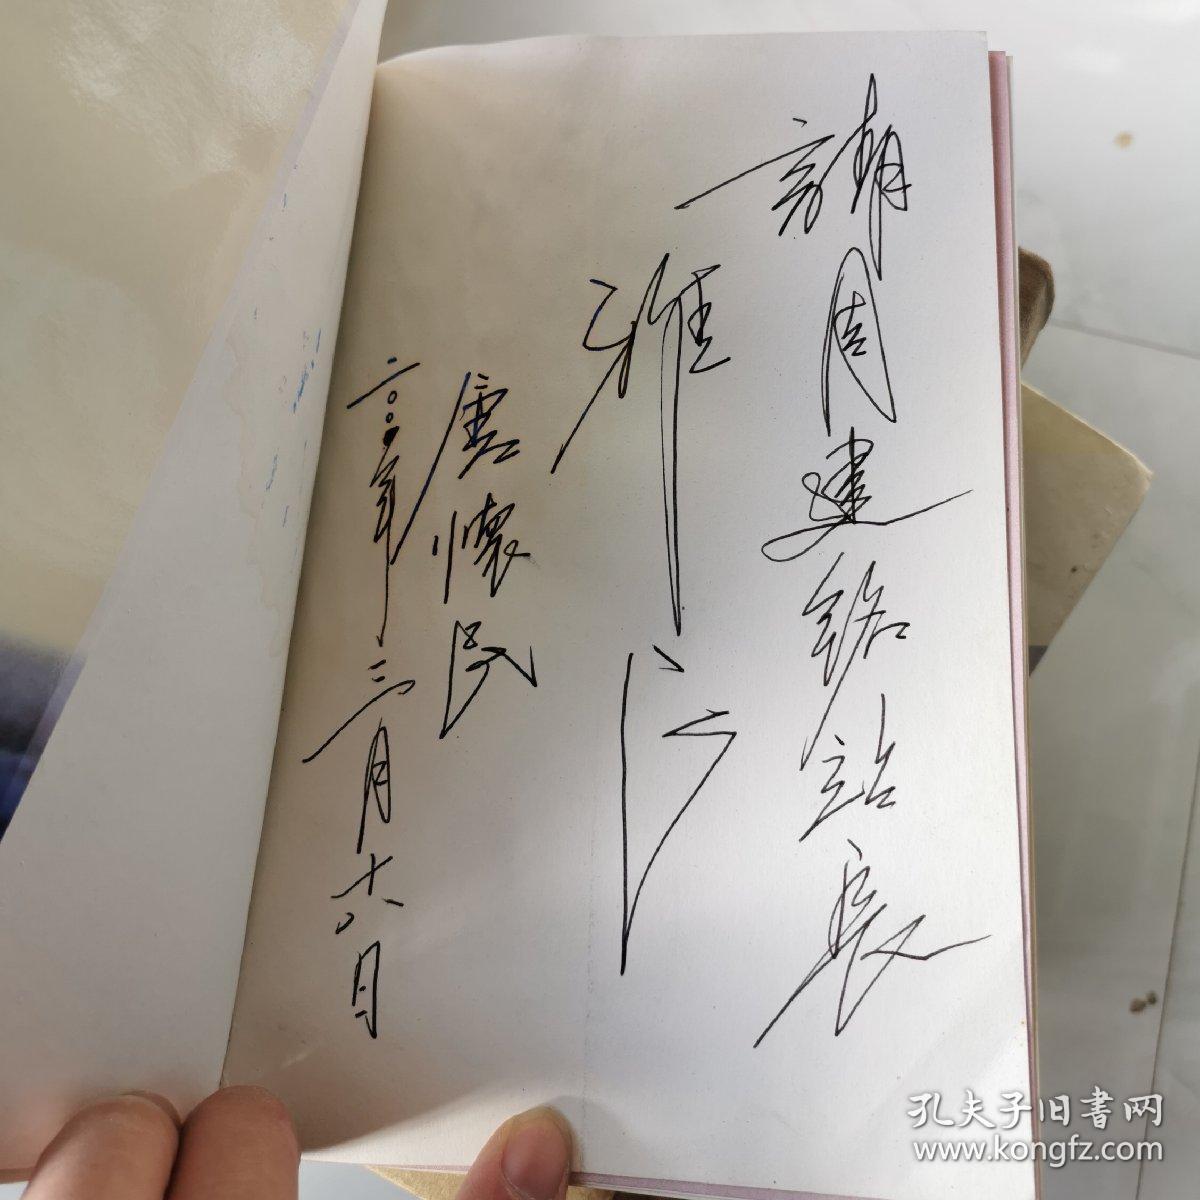 請周建銘站長
雅正
懷民
二〇〇年三月十八日
孔夫子旧書网
www.kongfz.com